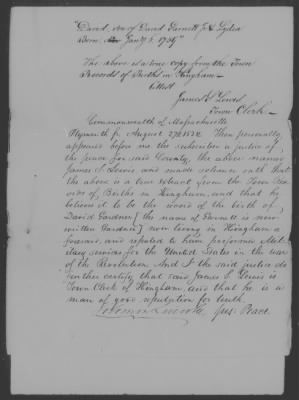 "David, son of David Garnett & Lydia
Born Jany 5. 1759"
The above is a true copy from the Town
Records of Births in Hingham—
Attest
James S Lewis
Town Clerk—
Commonwealth of Massachusetts
Plymouth ss August 27th 1832 Then personally
appeared before me the subscriber a justice of
the peace for said County, the above named
James S. Lewis, and made solemn oath that
the above is a true extract from the Town Rec-
ords of Births in Hingham, and that he
believes it to be the record of the birth of
David Gardner [the name of Garnett is now
written Gardner] now living in Hingham a
foresaid, and reputed to have performed Mil-
itary services for the United States in the war
of the Revolution And I the said justice do
further certify that said James S. Lewis is
Town Clerk of Hingham, and that he is a
man of good reputation for truth.
Solomon Lincoln Jus: Peace